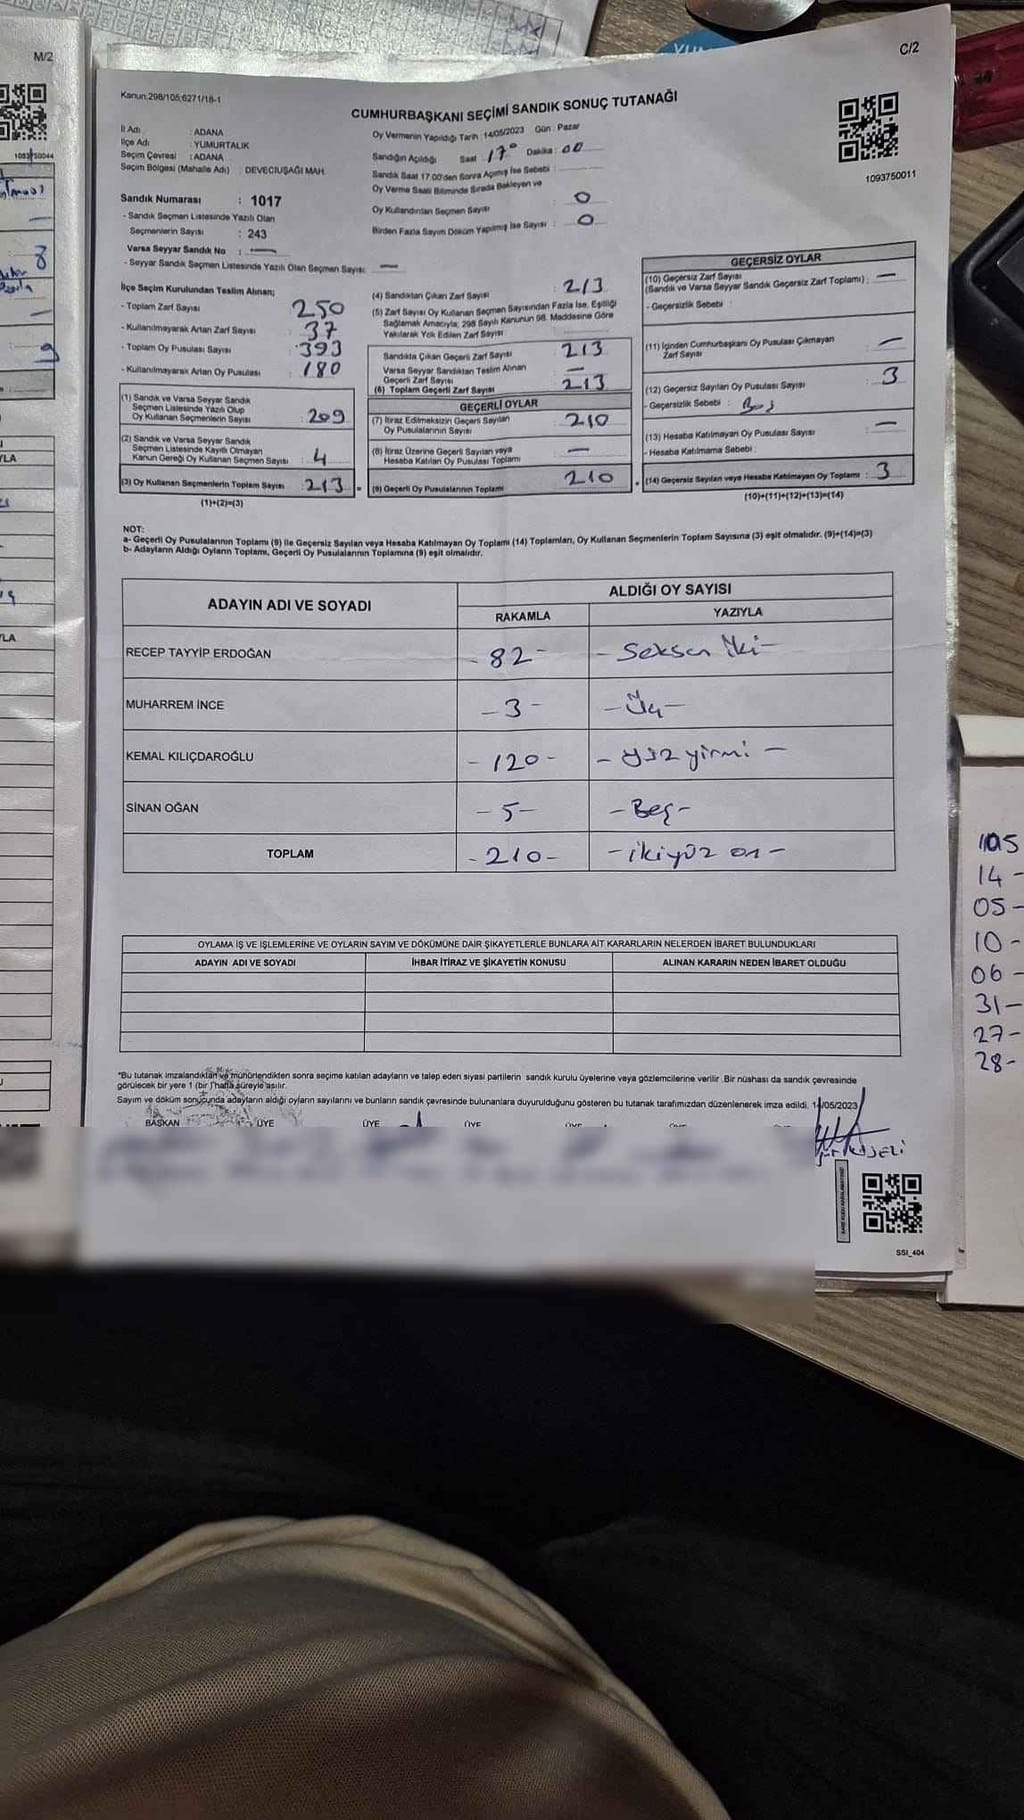 M/2
C/2
Kanun:298/105;6271/18-1
CUMHURBAŞKANI SEÇİMİ SANDIK SONUÇ TUTANAĞI
İl Adı : ADANA
İlçe Adı : YUMURTALIK
Seçim Çevresi : ADANA
Seçim Bölgesi (Mahalle Adı) : DEVECİUŞAĞI MAH.
Oy Vermenin Yapıldığı Tarih : 14/05/2023 Gün : Pazar
Sandığın Açıldığı Saat 17° Dakika : 00
Sandık Saat 17.00'den Sonra Açılmış İse Sebebi :
Oy Verme Saati Bitiminde Sırada Bekleyen ve
Oy Kullandırılan Seçmen Sayısı : 0
Birden Fazla Sayım Döküm Yapılmış İse Sayısı : 0
1093750011
Sandık Numarası : 1017
- Sandık Seçmen Listesinde Yazılı Olan
Seçmenlerin Sayısı : 243
Varsa Seyyar Sandık No : —
- Seyyar Sandık Seçmen Listesinde Yazılı Olan Seçmen Sayısı: —
İlçe Seçim Kurulundan Teslim Alınan;
- Toplam Zarf Sayısı 250
- Kullanılmayarak Artan Zarf Sayısı : 37
- Toplam Oy Pusulası Sayısı : 393
- Kullanılmayarak Artan Oy Pusulası : 180
(1) Sandık ve Varsa Seyyar Sandık
Seçmen Listesinde Yazılı Olup
Oy Kullanan Seçmenlerin Sayısı : 209
(2) Sandık ve Varsa Seyyar Sandık
Seçmen Listesinde Kayıtlı Olmayan
Kanun Gereği Oy Kullanan Seçmen Sayısı : 4
(3) Oy Kullanan Seçmenlerin Toplam Sayısı : 213
(1)+(2)=(3)
(4) Sandıktan Çıkan Zarf Sayısı : 213
(5) Zarf Sayısı Oy Kullanan Seçmen Sayısından Fazla İse, Eşitliği
Sağlamak Amacıyla; 298 Sayılı Kanunun 98. Maddesine Göre
Yakılarak Yok Edilen Zarf Sayısı :
Sandıkta Çıkan Geçerli Zarf Sayısı : 213
Varsa Seyyar Sandıktan Teslim Alınan
Geçerli Zarf Sayısı : —
(6) Toplam Geçerli Zarf Sayısı : 213
GEÇERLİ OYLAR
(7) İtiraz Edilmeksizin Geçerli Sayılan
Oy Pusulalarının Sayısı : 210
(8) İtiraz Üzerine Geçerli Sayılan veya
Hesaba Katılan Oy Pusulası Toplamı : —
(9) Geçerli Oy Pusulalarının Toplamı : 210
GEÇERSİZ OYLAR
(10) Geçersiz Zarf Sayısı
(Sandık ve Varsa Seyyar Sandık Geçersiz Zarf Toplamı) : —
- Geçersizlik Sebebi :
(11) İçinden Cumhurbaşkanı Oy Pusulası Çıkmayan
Zarf Sayısı : —
(12) Geçersiz Sayılan Oy Pusulası Sayısı : 3
- Geçersizlik Sebebi : Boş
(13) Hesaba Katılmayan Oy Pusulası Sayısı : —
- Hesaba Katılmama Sebebi :
(14) Geçersiz Sayılan veya Hesaba Katılmayan Oy Toplamı : 3
(10)+(11)+(12)+(13)=(14)
NOT:
a- Geçerli Oy Pusulalarının Toplamı (9) ile Geçersiz Sayılan veya Hesaba Katılmayan Oy Toplamı (14) Toplamları, Oy Kullanan Seçmenlerin Toplam Sayısına (3) eşit olmalıdır. (9)+(14)=(3)
b- Adayların Aldığı Oyların Toplamı, Geçerli Oy Pusulalarının Toplamına (9) eşit olmalıdır.
ADAYIN ADI VE SOYADI
ALDIĞI OY SAYISI
RAKAMLA YAZIYLA
RECEP TAYYİP ERDOĞAN - 82 - - Seksen İki -
MUHARREM İNCE - 3 - - Üç -
KEMAL KILIÇDAROĞLU - 120 - - yüz yirmi -
SİNAN OĞAN - 5 - - Beş -
TOPLAM - 210 - - ikiyüz on -
OYLAMA İŞ VE İŞLEMLERİNE VE OYLARIN SAYIM VE DÖKÜMÜNE DAİR ŞİKAYETLERLE BUNLARA AİT KARARLARIN NELERDEN İBARET BULUNDUKLARI
ADAYIN ADI VE SOYADI İHBAR İTİRAZ VE ŞİKAYETİN KONUSU ALINAN KARARIN NEDEN İBARET OLDUĞU
*Bu tutanak imzalandıktan ve mühürlendikten sonra seçime katılan adayların ve talep eden siyasi partilerin sandık kurulu üyelerine veya gözlemcilerine verilir. Bir nüshası da sandık çevresinde
görülecek bir yere 1 (bir) hafta süreyle asılır.
Sayım ve döküm sonucunda adayların aldığı oyların sayılarını ve bunların sandık çevresinde bulunanlara duyurulduğunu gösteren bu tutanak tarafımızdan düzenlenerek imza edildi. 14/05/2023
BAŞKAN ÜYE ÜYE ÜYE
SSI_404
105
14 -
05 -
10 -
06 -
31 -
27 -
28 -